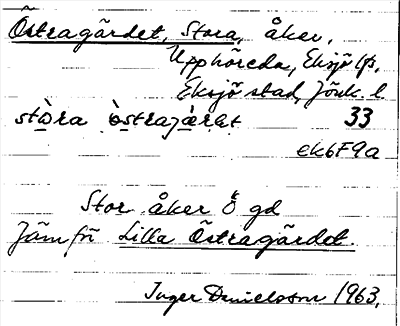 Östragärdet, Stora, åker,
Upphöreda, Eksjö lfs,
Eksjö stad, Jönk. l
stora östrajæret 33
ek6F9a
Stor åker Ö gd
Jämför Lilla Östragärdet.
Inger Danielsson 1963.